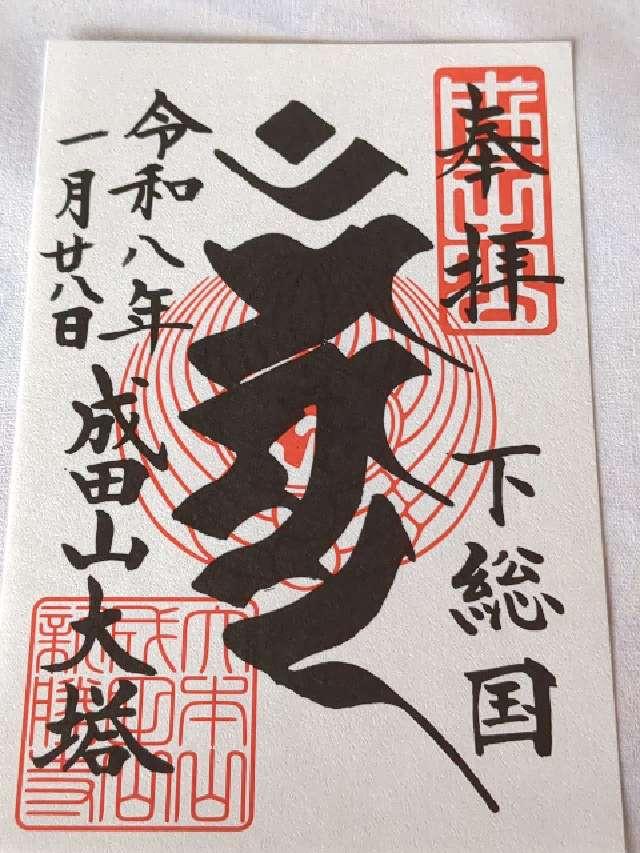 奉拝
下総国
令和八年
一月廿八日
成田山大塔
大本山
成田山
新勝寺